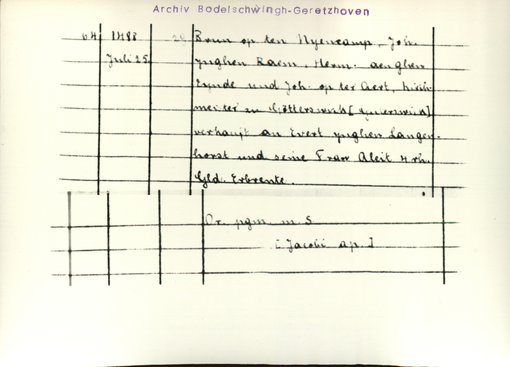 Archiv Bodelschwingh-Geretzhoven
64. 1488 Brun op ten Nyencamp, Joh.
Juli 25. ynghen Raem, Herm. aenghen
Eynde und Joh. op ter Aert, Kirch-
meister zu Götterswick [Goterswick]
verkauft an Evert ynghen Langen-
horst und seine Frau Aleit 4 rh.
Gld. Erbrente.
Or. pgm. m. S
[Jacobi ap.]